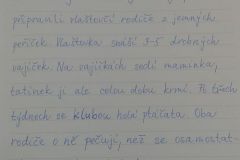 připravili vlaštovčí rodiče z jemných
peříček. Vlaštovka snáší 3-5 drobných
vajíček. Na vajíčkách sedí maminka,
tatínek ji ale celou dobu krmí. Po třech
týdnech se klubou holá ptáčata. Oba
rodiče o ně pečují, než se osamostat-